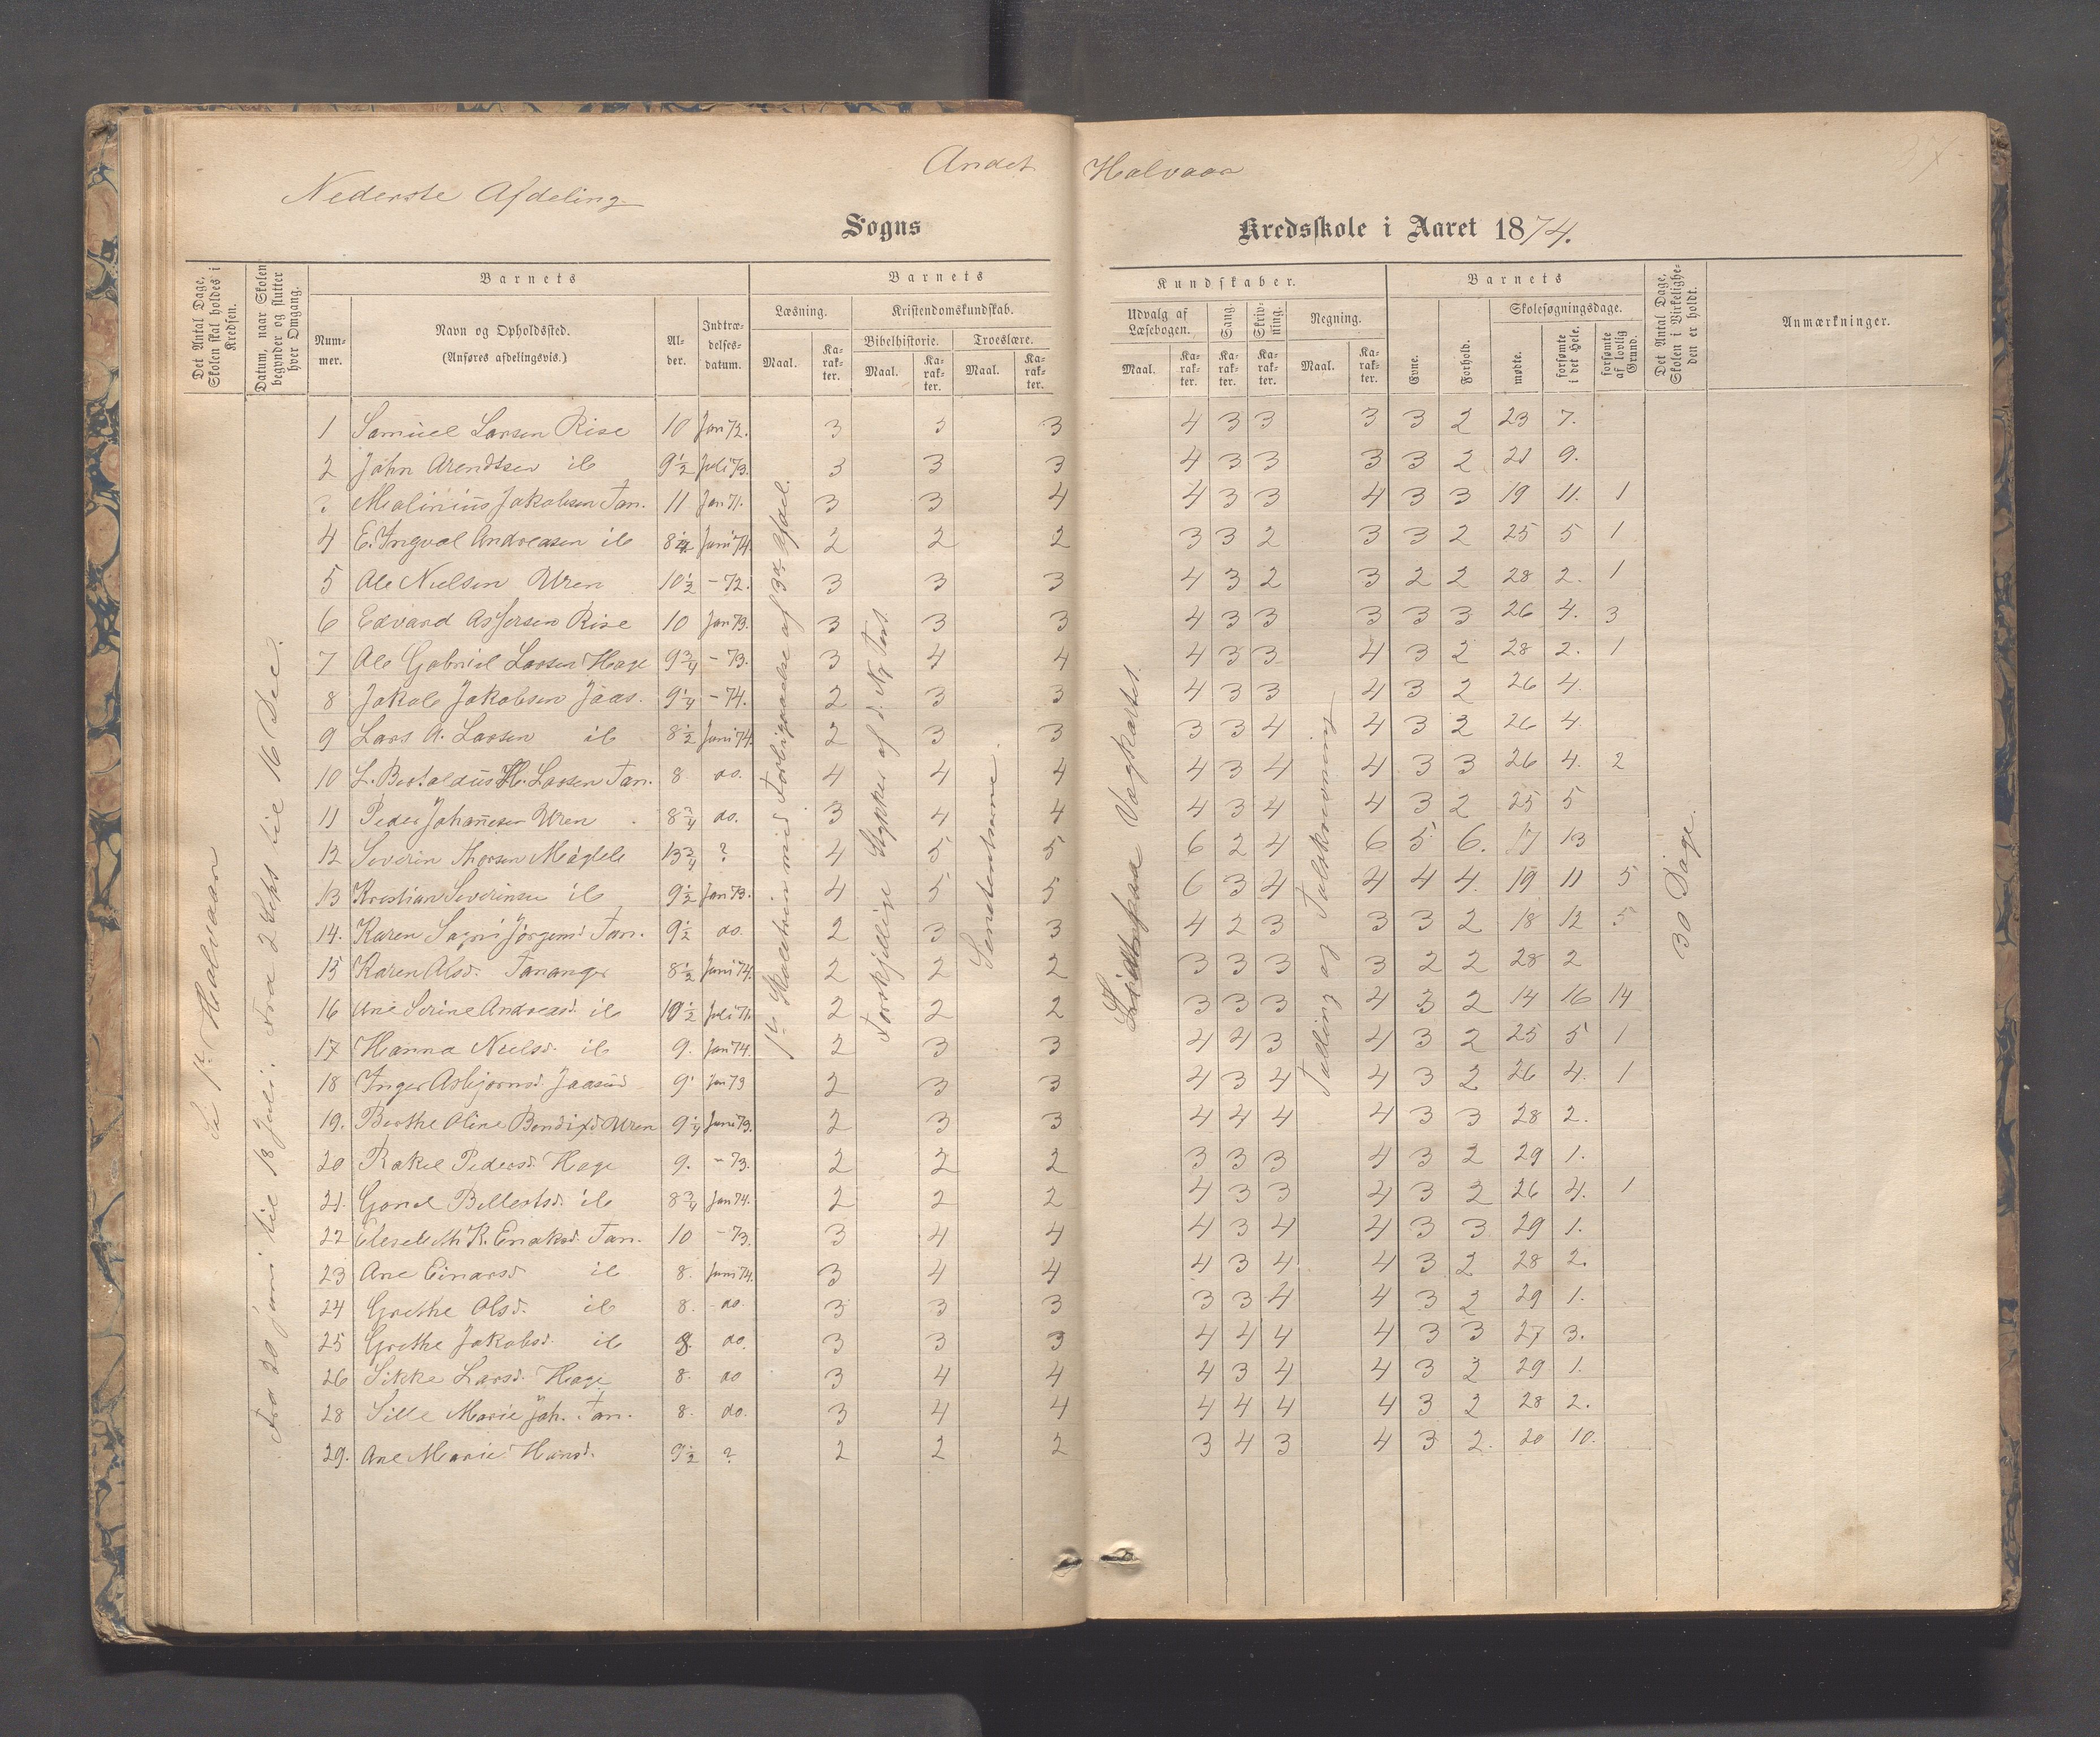 Andet Halvaar
Nederste Afdeling
Sogns Kredsskole i Aaret 1874.
Det Antal Dage, Skolen skal holdes i Kredsen.
Datum, naar Skolen begynder og slutter hver Omgang.
Barnets
Nummer.
Navn og Opholdssted.
(Anføres afdelingsvis.)
Alder.
Indtrædelsesdatum.
Barnets Kundskaber.
Læsning.
Maal. Karakter.
Kristendomskundskab.
Bibelhistorie. Troeslære.
Maal. Karakter. Maal. Karakter.
Udvalg af Læsebogen.
Maal. Karakter.
Sang. Karakter.
Skrivning. Karakter.
Regning.
Maal. Karakter.
Barnets
Evne. Forhold.
Skolesøgningsdage.
mødte. forsømte i det Hele. forsømte af lovlig Grund.
Det Antal Dage, Skolen i Virkeligheden er holdt.
Anmærkninger.
Se 1ste Halvaar
Fra 20 juni til 18 Juli. Fra 2 Sept til 16 Dec.
1ste Skoletrin med Forbigaaelse af 3die Afdel.
Forskjellige Stykker af d. Ny Test.
Tælling og Talskrivning
30 Dage.
1 Samuel Larsen Rise 10 Jan 72. 3 3 3 4 3 3 3 3 2 23 7.
2 John Arendtsen ib 9½ Juli 73. 3 3 3 4 3 3 3 3 2 21 9.
3 Malinius Jakobsen Tan. 11 Jan 71. 3 3 4 4 3 3 4 3 3 19 11. 1
4 E. Ingval Andreasen ib 8¼ Juni 74. 2 2 2 3 3 2 3 3 2 25 5 1
5 Ole Nielsen Uren 10½ - 72. 3 3 3 4 3 2 3 2 2 28 2. 1
6 Edvard Asjersen Rise 10 Jan 73. 3 3 3 4 3 3 3 3 3 26 4. 3
7 Ole Gabriel Larsen Hage 9¾ - 73. 3 4 4 4 3 3 4 3 2 28 2. 1
8 Jakob Jakobsen Jaas. 9¼ - 74. 2 3 3 4 3 3 4 3 2 26 4.
9 Lars A. Larsen ib 8½ Juni 74. 2 3 3 3 3 4 4 3 2 26 4.
10 L. Bertaldus H. Larsen Tan. 8. do. 4 4 4 4 3 4 4 3 3 26 4. 2
11 Peder Johannesen Uren 8¾ do. 3 4 4 4 3 4 4 3 2 25 5
12 Severin Thorsen Meglete 13¾ ? 4 5 5 6 2 4 6 5 6. 17 13
13 Kristian Severinsen ib 9½ Jan 73. 4 5 5 6 3 4 4 4 4. 19 11 5
14. Karen Sagni Jørgensd Tan. 9½ do. 2 3 3 4 2 3 3 3 2 18 12 5
15 Karen Olsd. Tananger 8½ Juni 74. 2 2 2 3 3 3 3 2 2 28 2
16 Ane Serine Andreasd. ib 10½ Juli 71. 2 2 2 3 3 3 4 3 2 14 16 14
17 Hanna Nielsd. ib 9. Jan 74. 2 3 3 4 4 3 4 3 2 25 5 1
18 Inger Asbjornsd. Jaasund 9. Jan 73 2 3 3 4 3 4 4 3 2 26 4. 1
19. Berthe Oline Bendixd Uren 9¼ Juni 73. 2 3 3 4 4 4 4 3 3 28 2.
20 Rakel Pedersd. Hage 9. - 73. 2 2 2 3 3 3 4 3 2 29 1.
21. Gonil Bellertsd. ib 8¾ Jan 74. 2 2 2 4 3 3 4 3 2 26 4. 1
22 Elesebeth R. Enoksd. Tan. 10 - 73. 3 4 4 4 3 4 4 3 3 29 1.
23 Ane Einarsd ib 8. Juni 74. 3 4 4 4 3 4 4 3 2 28 2.
24 Grethe Olsd. ib 8. do. 3 3 3 3 3 4 4 3 2 29 1.
25 Grethe Jakobsd. ib 8. do. 3 3 3 4 4 4 4 3 3 27 3.
26 Sikke Larsd. Hage 8. do 3 4 4 4 3 4 4 3 2 29 1.
28 Sille Marie Joh. Tan. 8. do. 3 4 4 4 4 4 4 3 2 28 2.
29. Ane Marie Hansd. 9½ ? 2 2 2 3 4 3 4 3 2. 20 10.